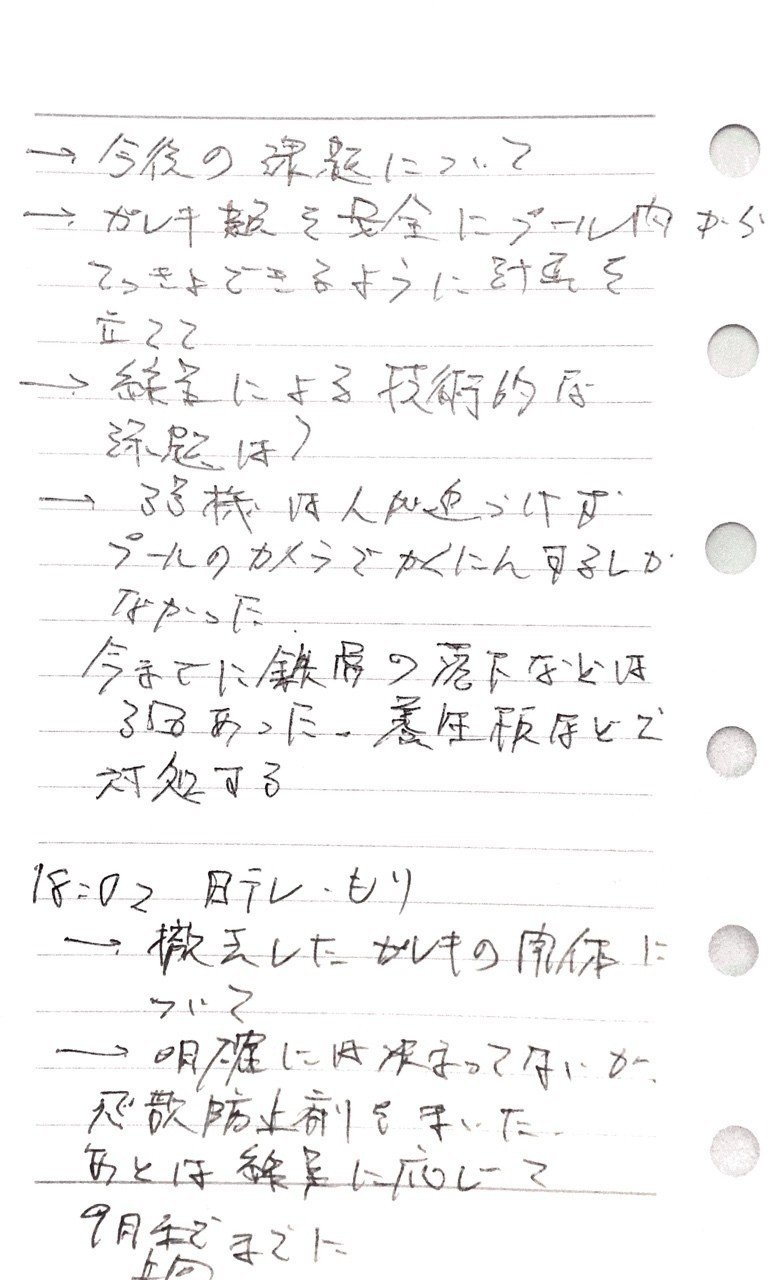 → 今後の課題について
→ ガレキ類を安全にプール内から
てっきょできるように計画を
立てて
→ 線量による技術的な
課題は?
→ 3号機は人が近づけず
プールのカメラでかくにんするしか
なかった.
今までに鉄骨の落下などは
3回あった。養生板などで
対処する
18:02 日テレ・もり
→ 撤去したガレキの
ついて
→ 明確には決まってないが、
飛散防止剤をまいた.
あとは線量に応じて
9月 までに